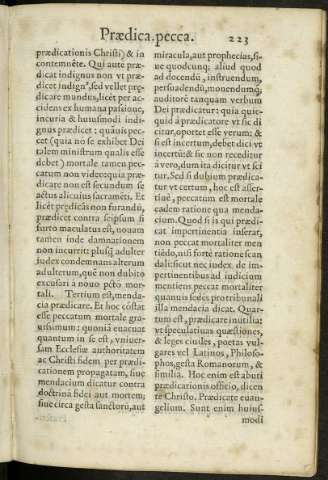 Prædica.pecca.
223
prædicationis Christi) & in
contemnẽte. Qui autẽ præ-
dicat indignus non vt præ-
dicet indignꝰ, sed vellet præ-
dicare mundus, licèt per ac-
cidens ex humana passióue,
incuria & huiusmodi indi-
gnus prædicet: quãuis pec-
cet (quia no se exhibet Dei
talem ministrum qualis esse
debet) mortale tamen pec-
catum non video: quia præ-
dicare non est secundum se
actus alicuius sacramẽti. Et
licet prædicãs non furandũ,
prædicet contra seipsum si
furto maculatus est, nouam
tamen inde damnationem
non incurrit: plusq̃ adulter
iudex condemnans alterum
adulterum, quẽ non dubito
excusari à nouo pctõ mor-
tali. Tertium est, menda-
cia prædicare. Et hoc cõstat
esse peccatum mortale gra-
uissimum: quonià euacuat
quantum in se est, vniuer-
sam Ecclesiæ authoritatem
ac Christi fidem per prædi-
cationem propagatam, siue
mendacium dicatur contra
doctrinã fidei aut mortem;
siue circa gesta sanctorũ, aut
miracula, aut prophecias, si-
ue quodcunq; aliud quod
ad docendũ, instruendum,
persuadendũ, monendumq;
auditorẽ tanquam verbum
Dei prædicatur: quia quic-
quid à prædicatore vt sic di
citur, oportet esse verum: &
si est incertum, debet dici vt
incertũ: & sic non receditur
a vero, dum ita dicitur vt sci
tur. Sed si dubium prædica-
tur vt certum, hoc est asser-
tiuè, peccatum est mortale
eadem ratione qua menda-
cium. Quod si is qui prædi-
cat impertinentia inserat,
non peccat mortaliter men
tiẽdo, nisi fortè ratione scan
dali: sicut nec iudex de im-
pertinentibus ad iudicium
mentiens peccat mortaliter
quanuis sedẽs pro tribunali
illa mendacia dicat. Quar-
tum est, prædicare inutilia:
vt speculatiuas quæstiones,
& leges ciuiles, poetas vul-
gares vel Latinos, Philoso-
phos, gesta Romanorum, &
similia. Hoc enim est abuti
prædicationis officio, dicen
te Christo. Prædicate euan-
gelium. Sunt enim huius-
modi